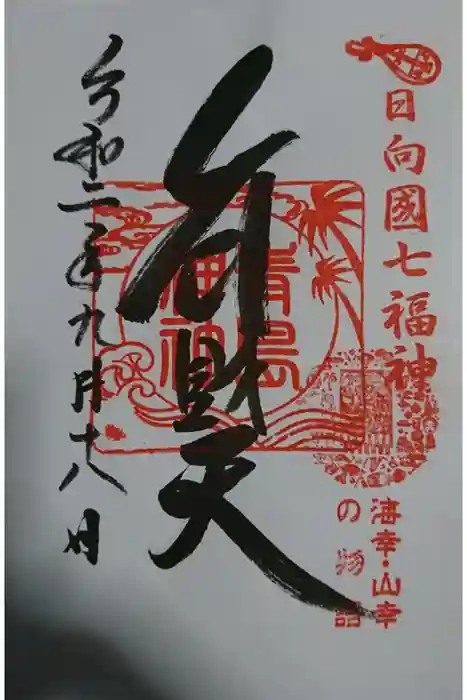 日向國七福神
海幸・山幸
の物語
青島
神社
弁財天
令和二年九月十八日